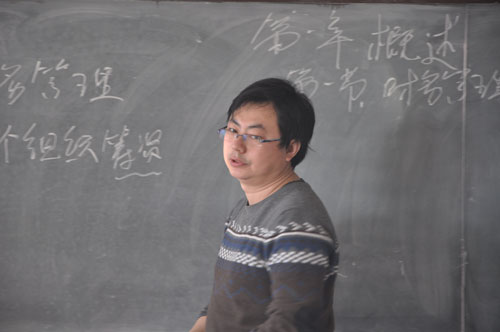 务管理
个组织筹资
第一章 概述
第一节 财务管理